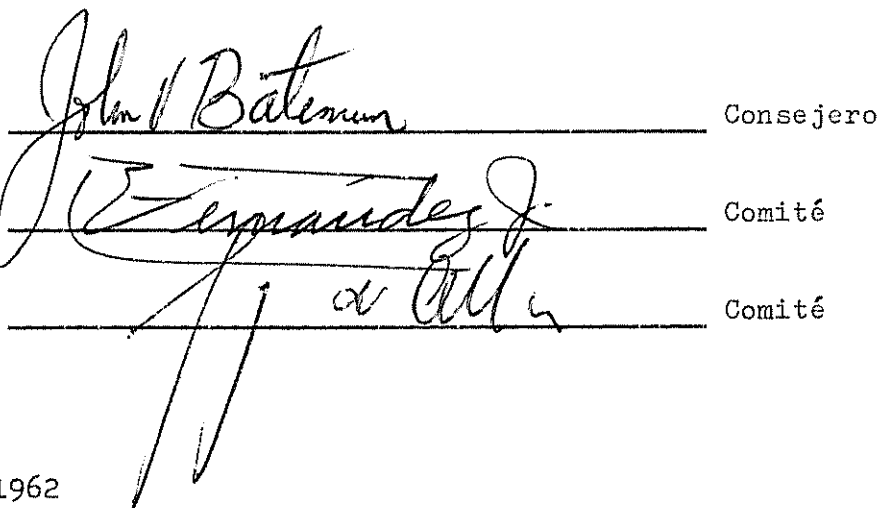 John V Bateman Consejero
Fernández J. Comité
Comité
1962